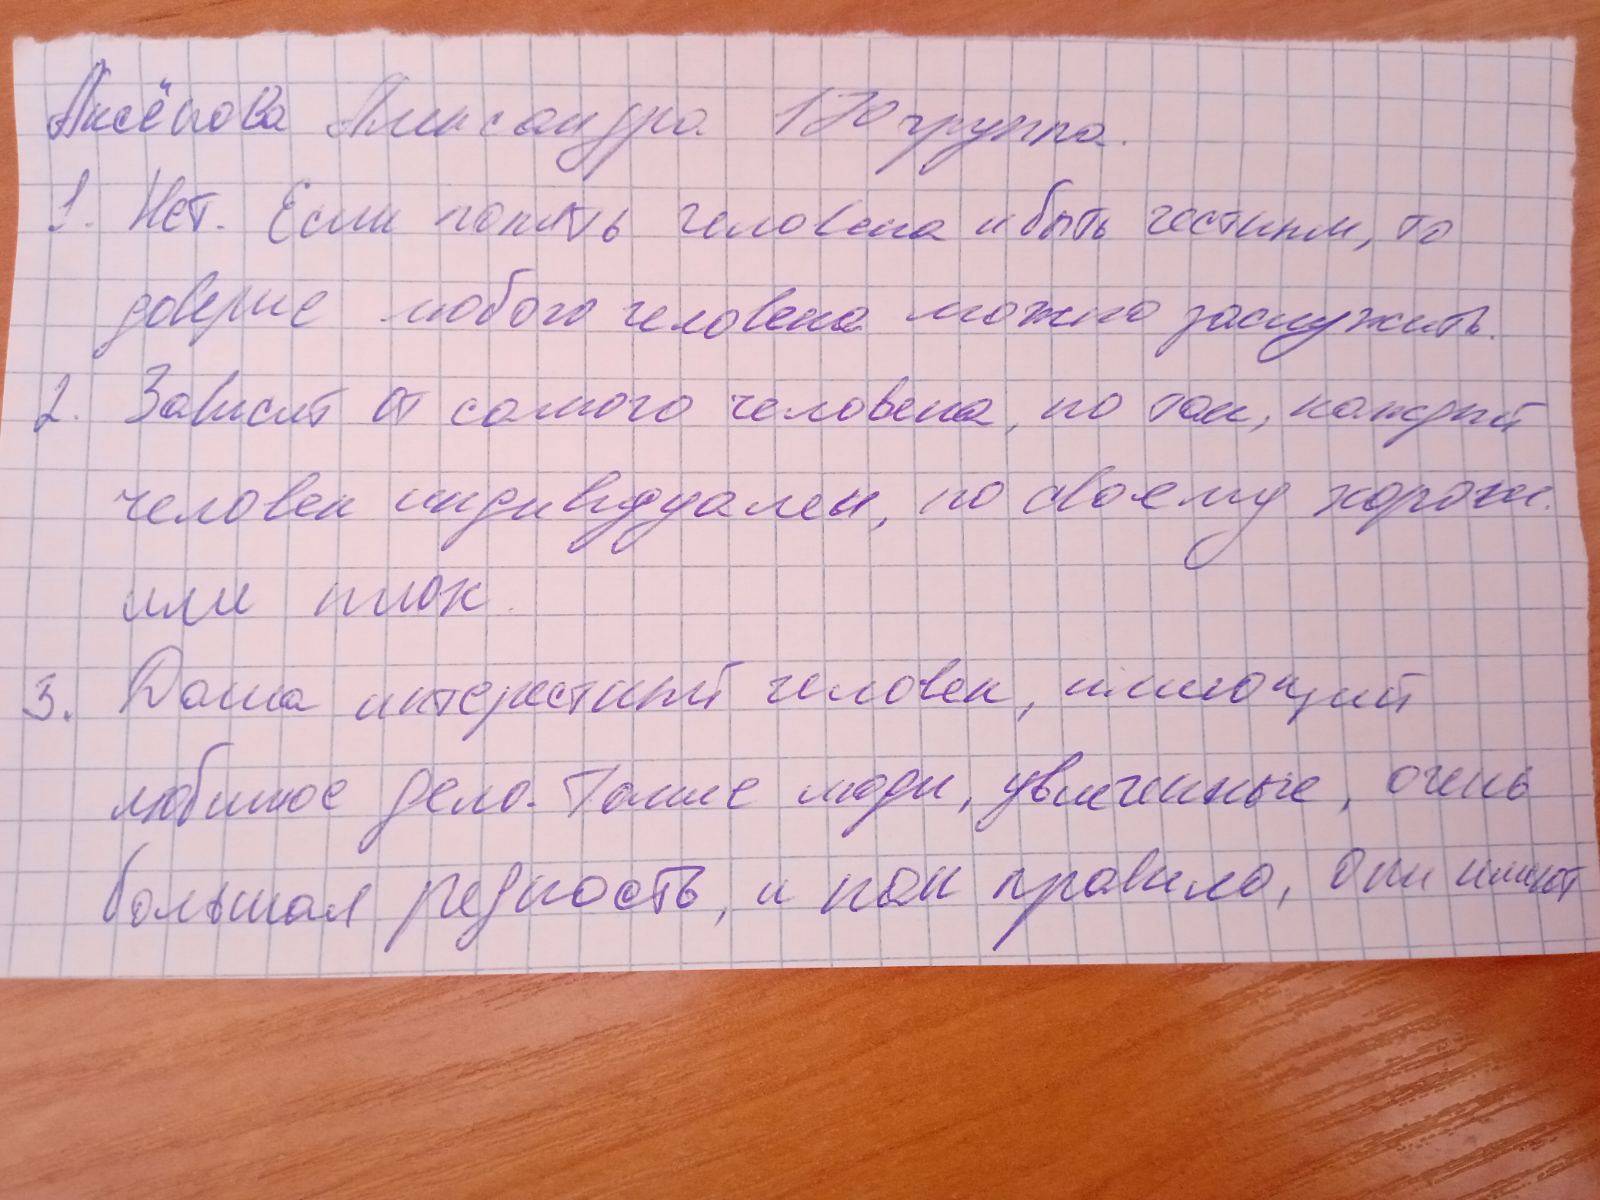 Аксёнова Александра 170 группа.
1. Нет. Если понять человека и быть честным, то
доверие любого человека можно заслужить.
2. Зависит от самого человека, но так, каждый
человек индивидуален, по своему хорош.
или плох.
3. Даша интересный человек, имеющий
любимое дело. Такие люди, увлеченные, очень
большая редкость, и как правило, они имеют